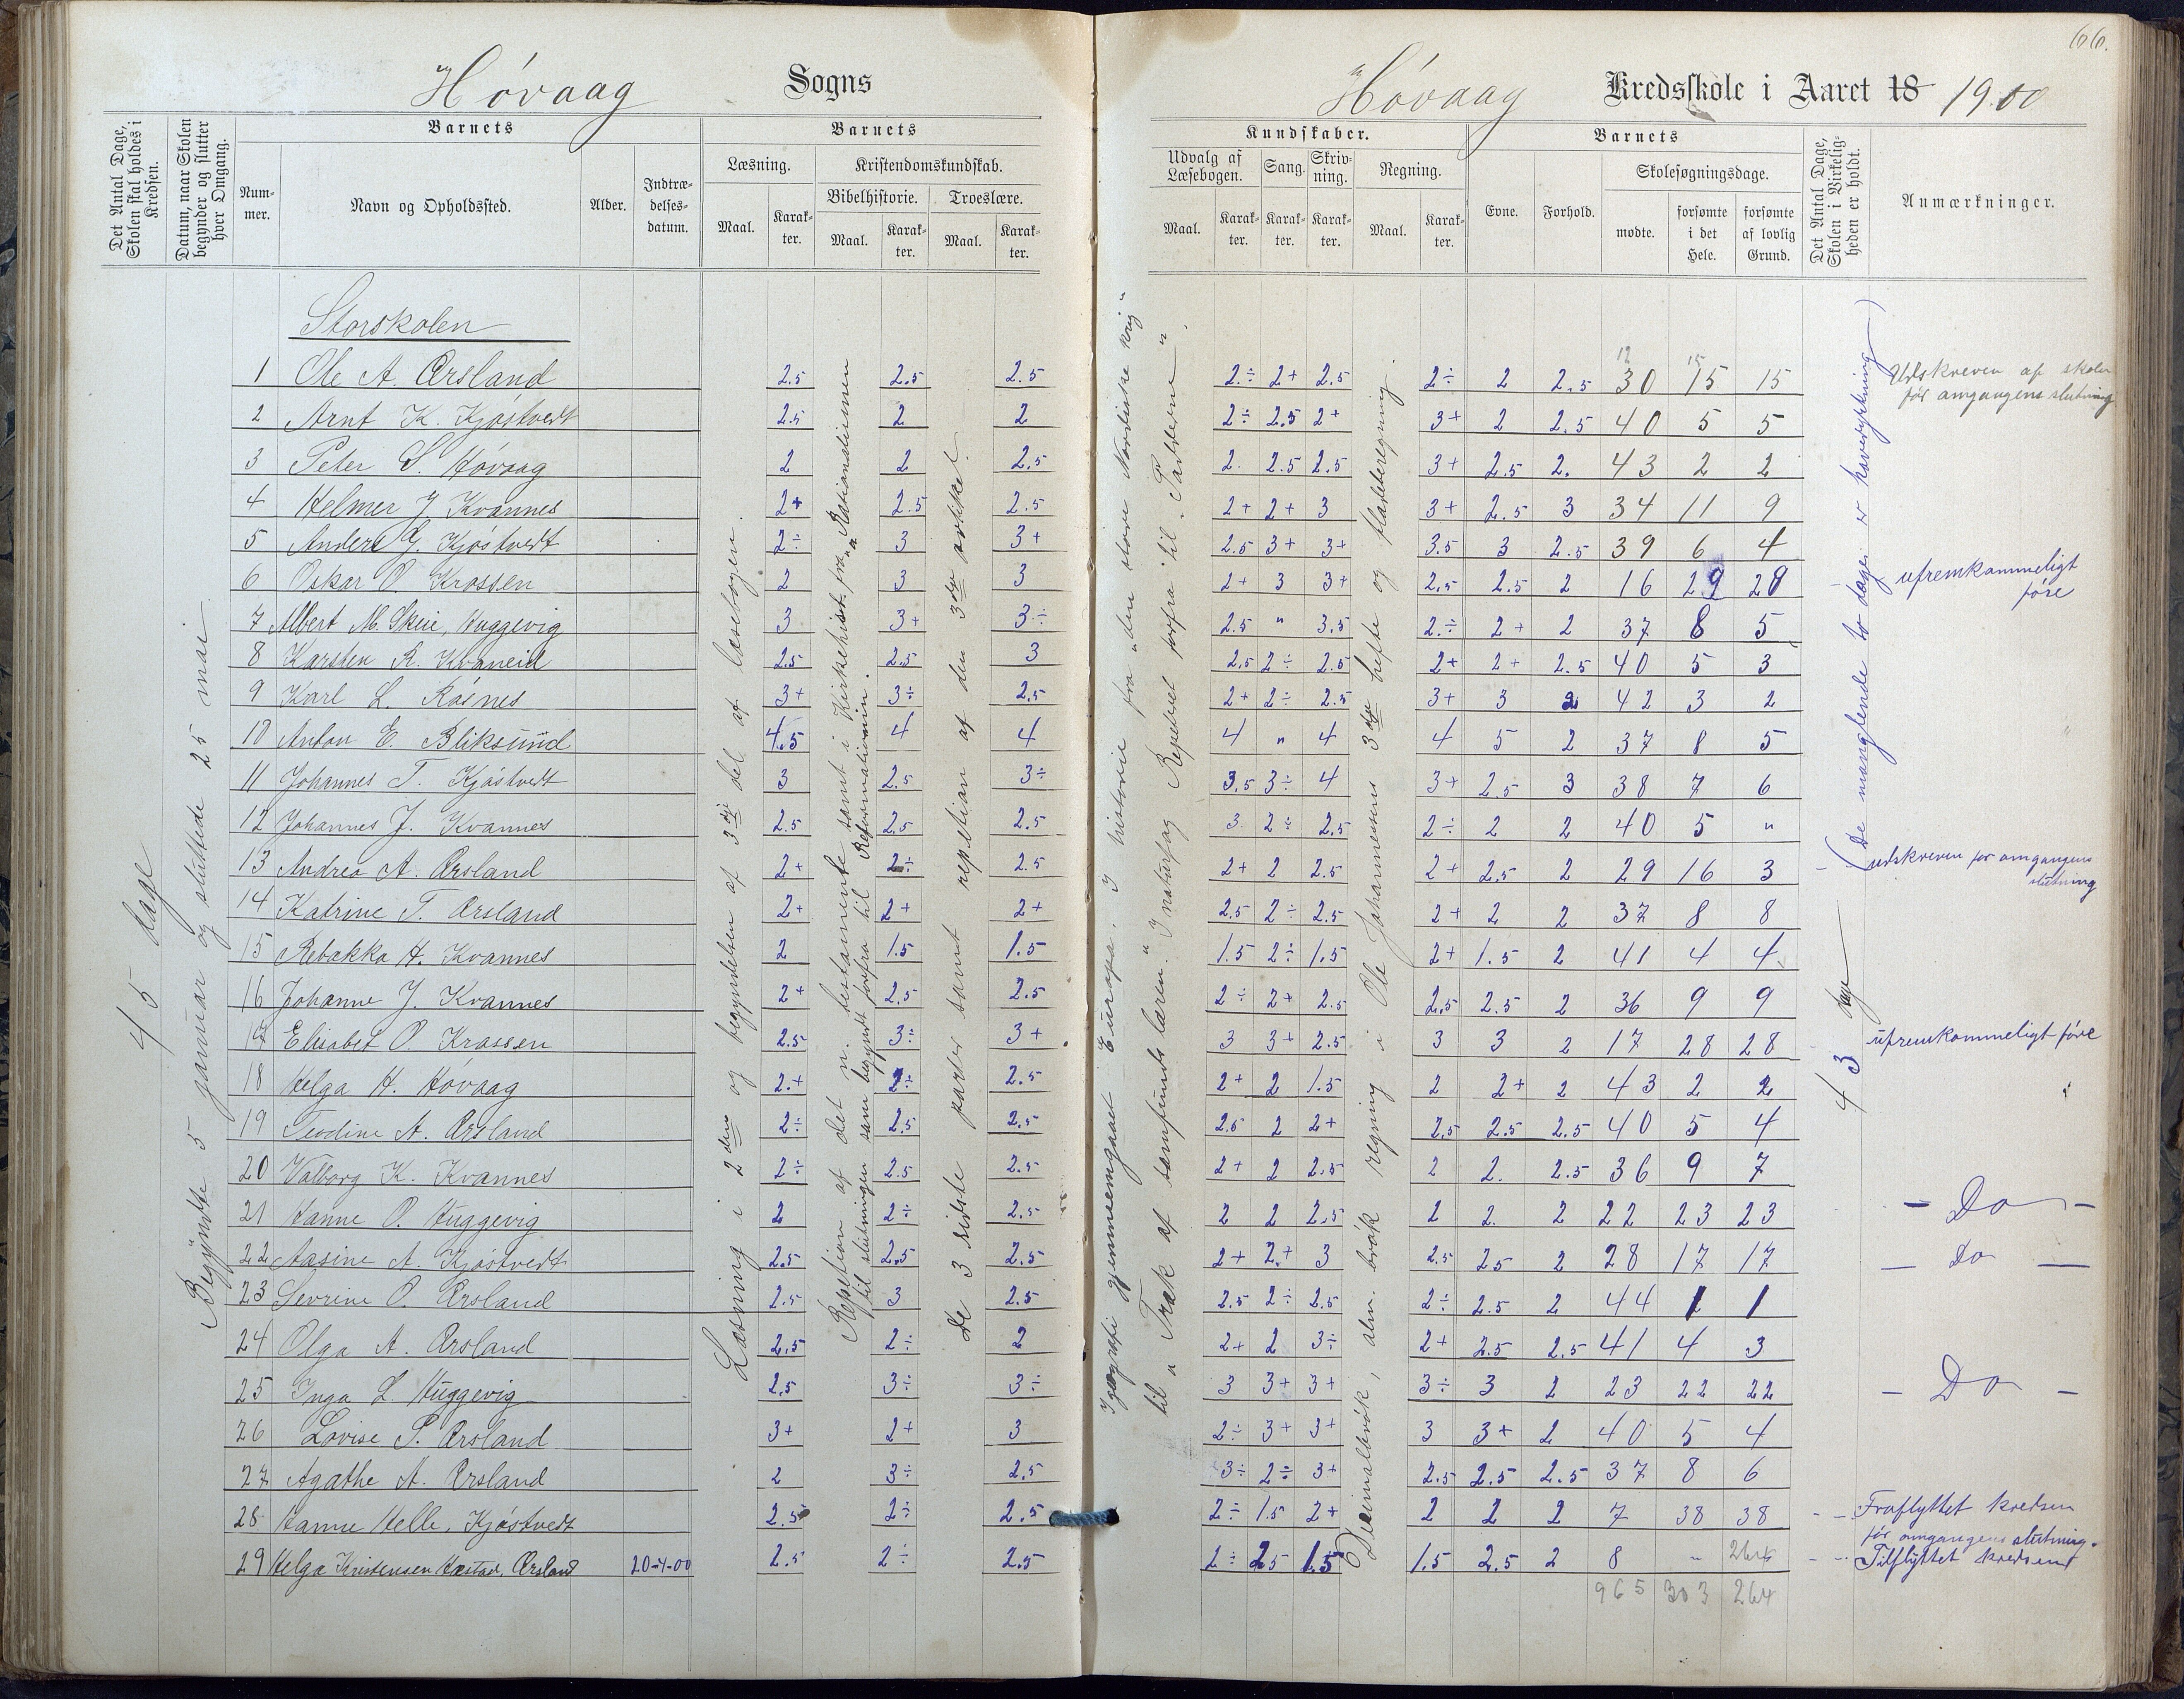 66.
Høvaag Sogns
Høvaag Kredsskole i Aaret 18 1900
Det Antal Dage, Skolen skal holdes i Kredsen.
Datum, naar Skolen begynder og slutter hver Omgang.
Barnets
Nummer.
Navn og Opholdssted.
Alder.
Indtrædelsesdatum.
Barnets
Læsning.
Maal.
Karakter.
Kristendomskundskab.
Bibelhistorie.
Maal.
Karakter.
Troeslære.
Maal.
Karakter.
Kundskaber.
Udvalg af Læsebogen.
Maal.
Karakter.
Sang.
Karakter.
Skrivning.
Karakter.
Regning.
Maal.
Karakter.
Barnets
Evne.
Forhold.
Skolesøgningsdage.
mødte.
forsømte i det Hele.
forsømte af lovlig Grund.
Det Antal Dage, Skolen i Virkeligheden er holdt.
Anmærkninger.
45 dage
Begyndte 5 januar og sluttede 25 mai
Læsning i 2den og begyndelsen af 3die del af læsebogen.
Repetion af det n. testamente samt i Kirkehist. fra "Rationalismen"
til slutningen sam begyndt forfra til Reformationen.
de 3 sidste parter samt repettion af den 3die artikkel.
I geografi gjennemgaaet Europa. I historie fra "den store Nordiske krig"
til "Træk af samfundslæren." I naturfag Repeteret forfra til "Pattedyr".
Decimalbrøk, alm. brøk regning i Ole Johannessens 3die hefte og fladeberegning
43 dage (De manglende to dage er havedyrkning)
Storskolen
1 Ole A. Ørsland 2.5 2.5 2.5 2÷ 2+ 2.5 2÷ 2 2.5 30 15 15 Udskreven af skolen
før omgangens slutning
2 Arnt K. Kjøstvedt 2.5 2 2 2÷ 2.5 2+ 3+ 2 2.5 40 5 5
3 Peter S. Høvaag 2 2 2.5 2. 2.5 2.5 3+ 2.5 2. 43 2 2
4 Helmer J. Kvannes 2+ 2.5 2.5 2+ 2+ 3 3+ 2.5 3 34 11 9
5 Anders G. Kjøstvedt 2÷ 3 3+ 2.5 3+ 3+ 3.5 3 2.5 39 6 4
6 Oskar O. Krossen 2 3 3 2+ 3 3+ 2.5 2.5 2 16 29 29 ufremkommeligt
føre
7 Albert M. Skeie, Huggevig 3 3+ 3÷ 2.5 " 3.5 2÷ 2+ 2 37 8 5
8 Karsten R. Kvaneid 2.5 2.5 3 2.5 2÷ 2.5 2+ 2+ 2.5 40 5 3
9 Karl L. Røsnes 3+ 3÷ 2.5 2+ 2÷ 2.5 3+ 3 2 42 3 2
10 Anton E. Bliksund 4.5 4 4 4 " 4 4 5 2 37 8 5
11 Johannes T. Kjøstvedt 3 2.5 3÷ 3.5 3÷ 4 3+ 2.5 3 38 7 6
12 Johannes J. Kvannes 2.5 2.5 2.5 3 2÷ 2.5 2÷ 2 2 40 5 "
13 Andrea A. Ørsland 2+ 2÷ 2.5 2+ 2 2.5 2+ 2.5 2 29 16 3 udskreven før omgangens
slutning
14 Katrine T. Ørsland 2+ 2+ 2+ 2.5 2÷ 2.5 2+ 2 2 37 8 8
15 Rebakka H. Kvannes 2 1.5 1.5 1.5 2÷ 1.5 2+ 1.5 2 41 4 4
16 Johanne J. Kvannes 2+ 2.5 2.5 2÷ 2+ 2.5 2.5 2.5 2 36 9 9
17 Elisabet O. Krossen 2.5 3÷ 3+ 3 3+ 2.5 3 3 2 17 28 28 ufremkommeligt føre
18 Helga H. Høvaag 2+ 2÷ 2.5 2+ 2 1.5 2 2+ 2 43 2 2
19 Teodine A. Ørsland 2÷ 2.5 2.5 2.5 2 2+ 2.5 2.5 2.5 40 5 4
20 Valborg K. Kvannes 2÷ 2.5 2.5 2+ 2 2.5 2 2. 2.5 36 9 7
21 Hanne O. Huggevig 2 2÷ 2.5 2 2 2.5 2 2. 2 22 23 23 – Do –
22 Aasine A. Kjøstvedt 2.5 2.5 2.5 2+ 2+ 3 2.5 2.5 2 28 17 17 – Do –
23 Sevrine O. Ørsland 2.5 3 2.5 2.5 2÷ 2.5 2÷ 2.5 2 44 1 1
24 Olga A. Ørsland 2.5 2÷ 2 2+ 2 3÷ 2+ 2.5 2.5 41 4 3
25 Inga L. Huggevig 2.5 3÷ 3÷ 3 3+ 3+ 3÷ 3 2 23 22 22 – Do –
26 Lovise P. Ørsland 3+ 2+ 3 2÷ 3+ 3+ 3 3+ 2 40 5 4
27 Agathe A. Ørsland 2 3÷ 2.5 3÷ 2÷ 3+ 2.5 2.5 2.5 37 8 6
28 Hanne Helle, Kjøstvedt 2.5 2÷ 2.5 2÷ 1.5 2+ 2 2 2 7 38 38 Fraflyttet kredsen
før omgangens slutning.
29 Helga Kristensen Hæstad, Ørsland 20-4-00 2.5 2÷ 2.5 2÷ 2.5 1.5 1.5 2.5 2 8 " 264 Tilflyttet kredsen
965 303 264